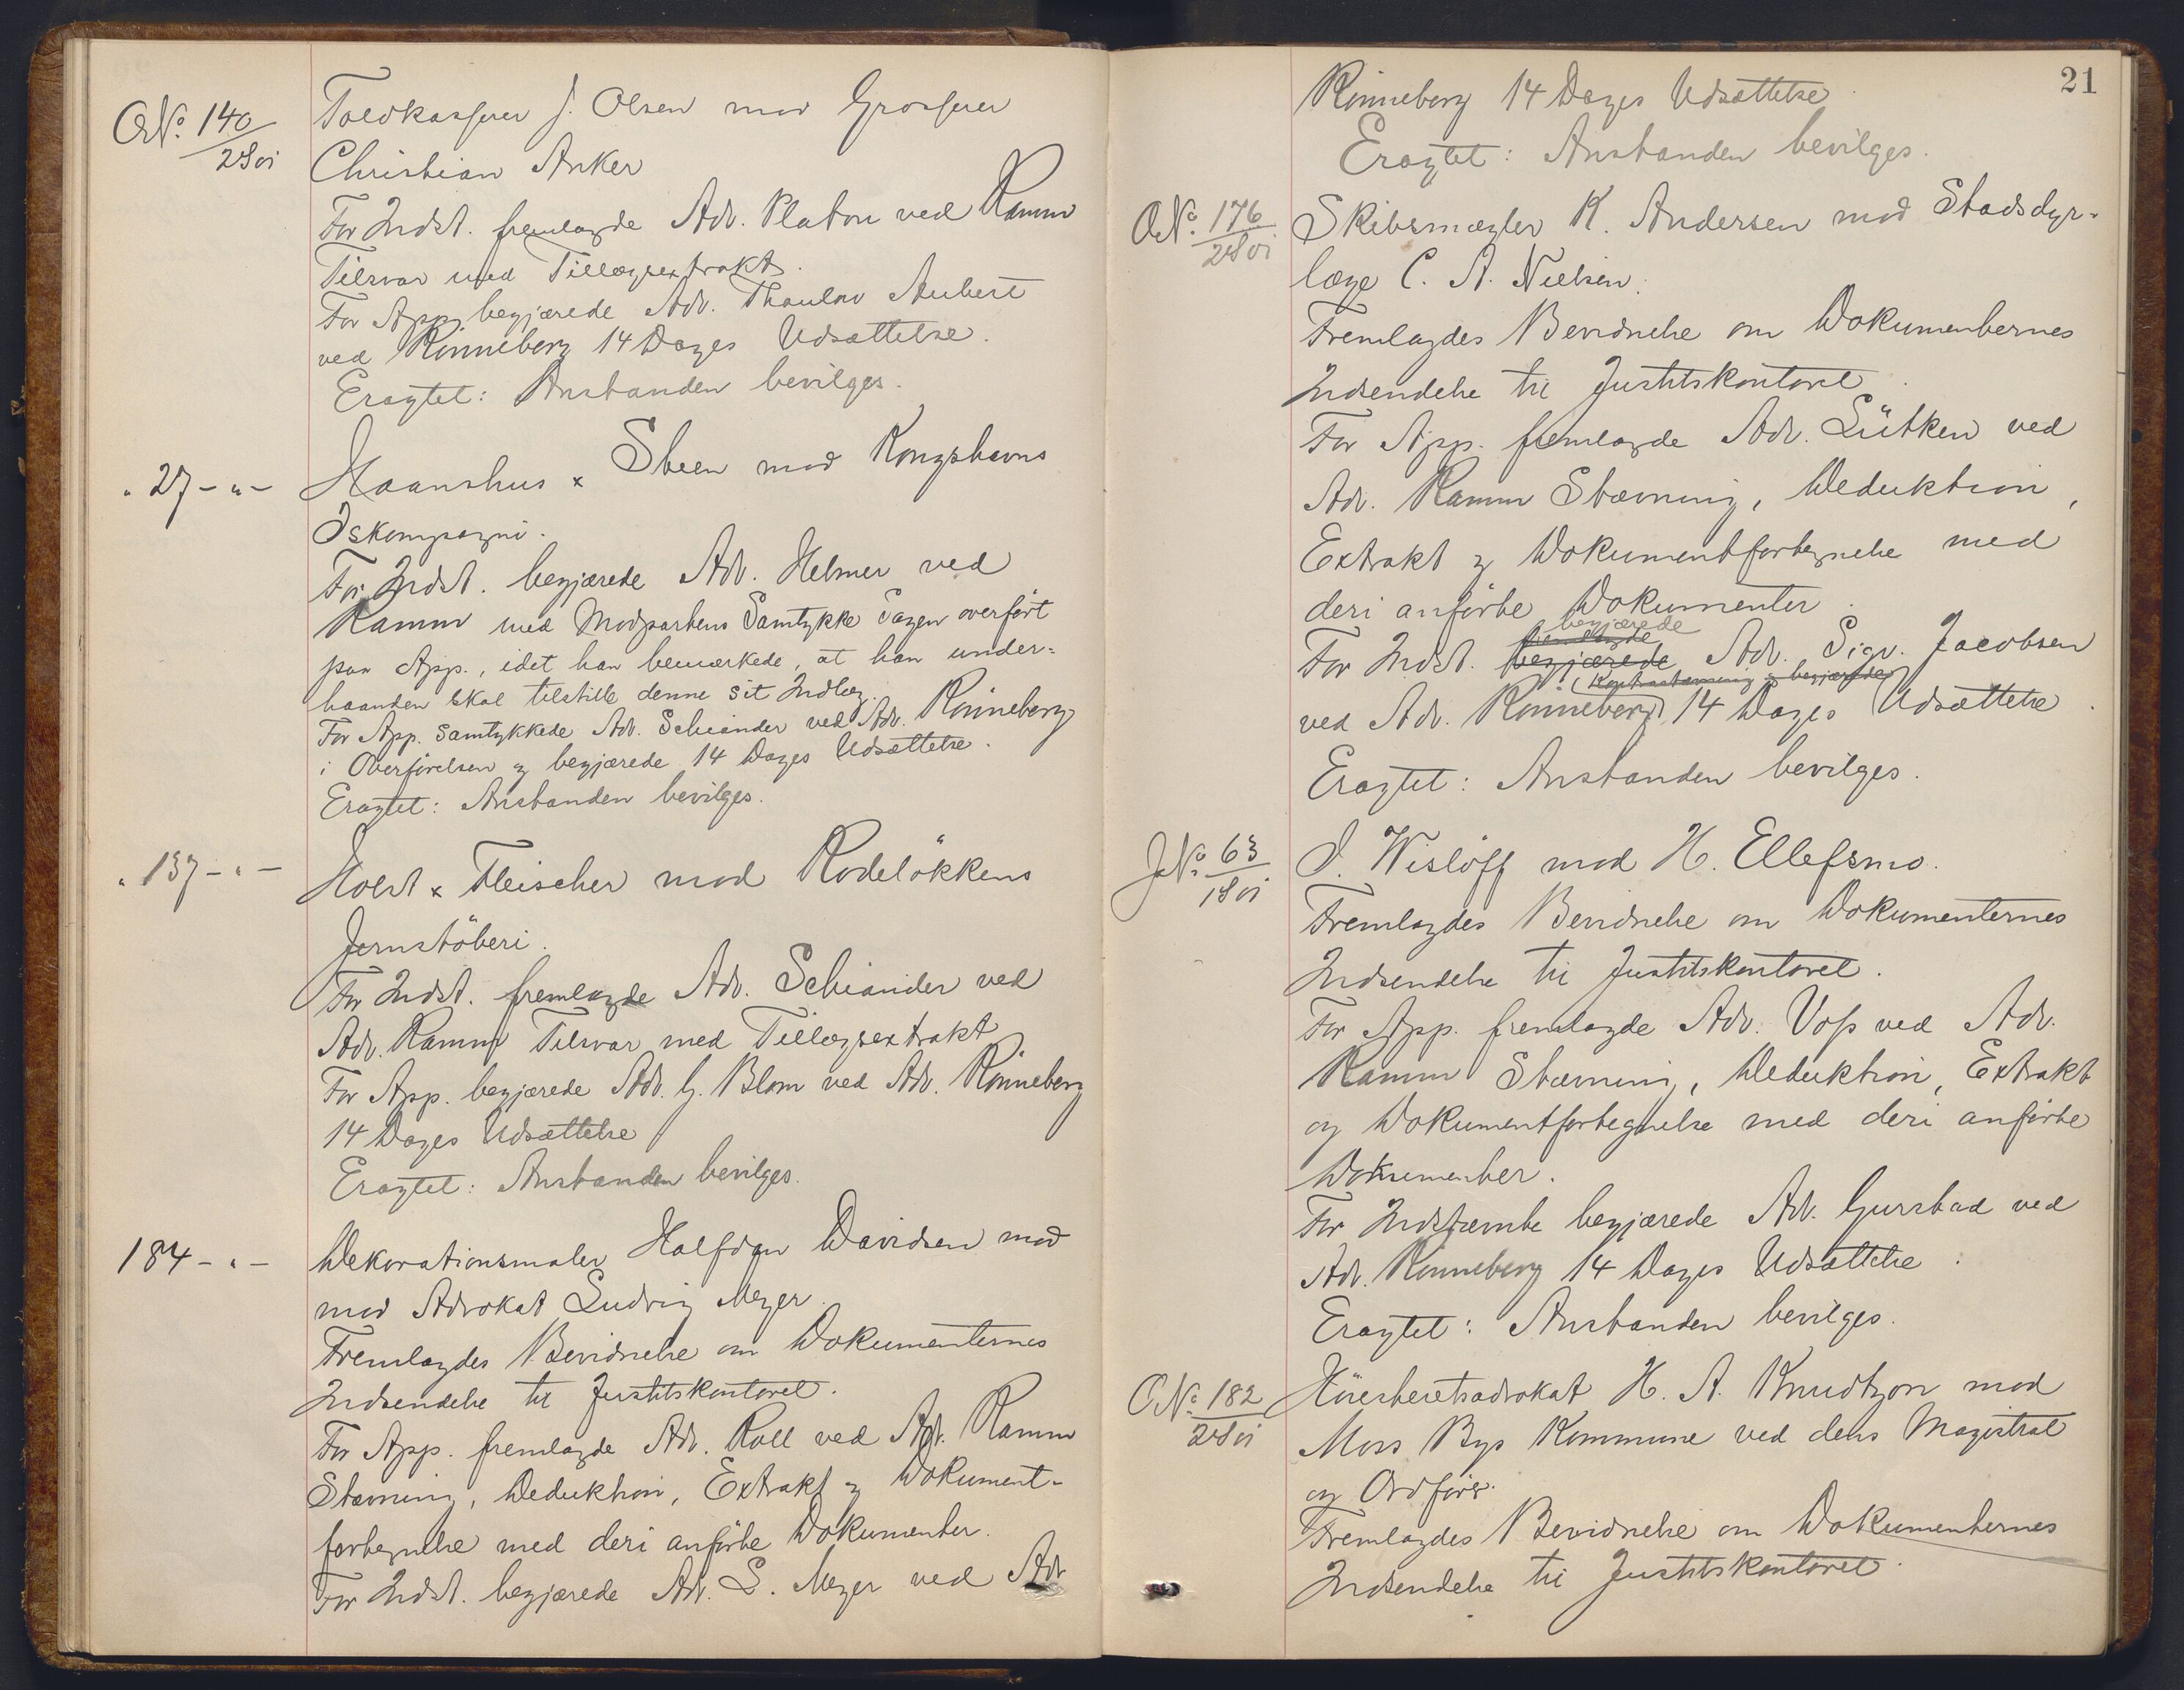 O.No. 140/2 S 01
Toldkasserer J. Olsen mod Grosserer
Christian Anker
For Indst. fremlagde Adv. Platou ved Ramm
Tilsvar med Tillægsextrakt.
For App. begjærede Adv. Thaulow Aubert
ved Rönneberg 14 Dages Udsættelse.
Eragtet: Anstanden bevilges.
" 27 - " -
Haanshus & Steen mod Kongshavns
Iskompagni.
For Indst. begjærede Adv. Helmer ved
Ramm med Modpartens Samtykke Sagen overført
paa App., idet han bemærkede, at han under-
haanden skal tilstille denne sit Indlæg.
For App. samtykkede Adv. Schiander ved Adv. Rönneberg
i Overförelsen og begjærede 14 Dages Udsættelse.
Eragtet: Anstanden bevilges.
" 137 - " -
Holst & Fleischer mod Rodelökkens
Jernstöberi.
For Indst. fremlagde Adv. Schiander ved
Adv. Ramm Tilsvar med Tillægsextrakt
For App. begjærede Adv. G. Blom ved Adv. Rönneberg
14 Dages Udsættelse
Eragtet: Anstanden bevilges.
184 - " -
Dekorationsmaler Halfdan Davidsen mod
mod Advokat Ludvig Meyer.
Fremlagdes Bevidnelse om Dokumenternes
Indsendelse til Justitskontoret.
For App. fremlagde Adv. Roll ved Adv. Ramm
Stævning, Deduktion, Extrakt og Dokument-
fortegnelse med deri anförte Dokumenter.
For Indst. begjærede Adv. L. Meyer ved Adv
21
Rönneberg 14 Dages Udsættelse.
Eragtet: Anstanden bevilges.
O.No. 176/2 S 01
Skibsmægler K. Andersen mod Stadsdyr-
læge C. A. Nielsen.
Fremlagdes Bevidnelse om Dokumenternes
Indsendelse til Justitskontoret.
For App. fremlagde Adv. Lütken ved
Adv. Ramm Stævning, Deduktion,
Extrakt og Dokumentfortegnelse med
deri anförte Dokumenter.
begjærede
fremlagde
For Indst. begjærede Adv. Sigv. Jacobsen
Kontrastævning og begjærede
ved Adv. Rönneberg 14 Dages Udsættelse.
Eragtet: Anstanden bevilges.
J.No. 63/1 S 01
I. Wislöff mod H. Ellefsmo.
Fremlagdes Bevidnelse om Dokumenternes
Indsendelse til Justitskontoret.
For App. fremlagde Adv. Voss ved Adv.
Ramm Stævning, Deduktion, Extrakt
og Dokumentfortegnelse med deri anförte
Dokumenter.
For Indstævnte begjærede Adv. Gurstad ved
Adv. Rönneberg 14 Dages Udsættelse.
Eragtet: Anstanden bevilges.
O.No. 182/2 S 01
Höiesteretsadvokat H. A. Knudtzon mod
Moss Bys Kommune ved dens Magistrat
og Ordförer.
Fremlagdes Bevidnelse om Dokumenternes
Indsendelse til Justitskontoret.